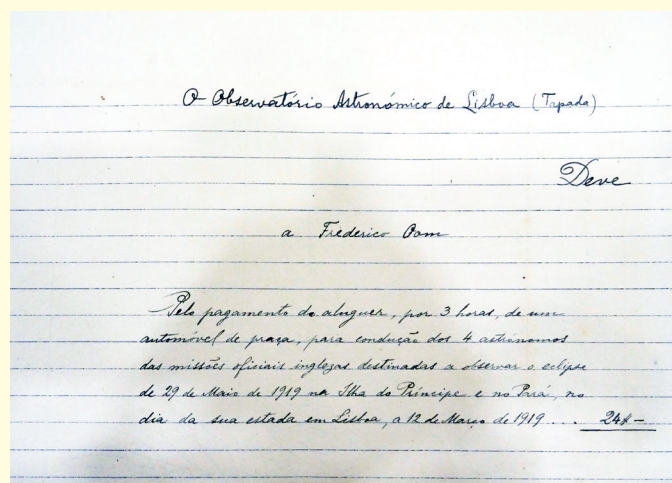 O Observatório Astronómico de Lisboa (Tapada)
Deve
a Frederico Oom
Pelo pagamento do aluguer, por 3 horas, de um
automóvel de praça, para condução dos 4 astrónomos
das missões oficiais inglezas destinadas a observar o eclipse
de 29 de Maio de 1919 na Ilha do Príncipe e no Pará, no
dia da sua estada em Lisboa, a 12 de Março de 1919 ... 24$-